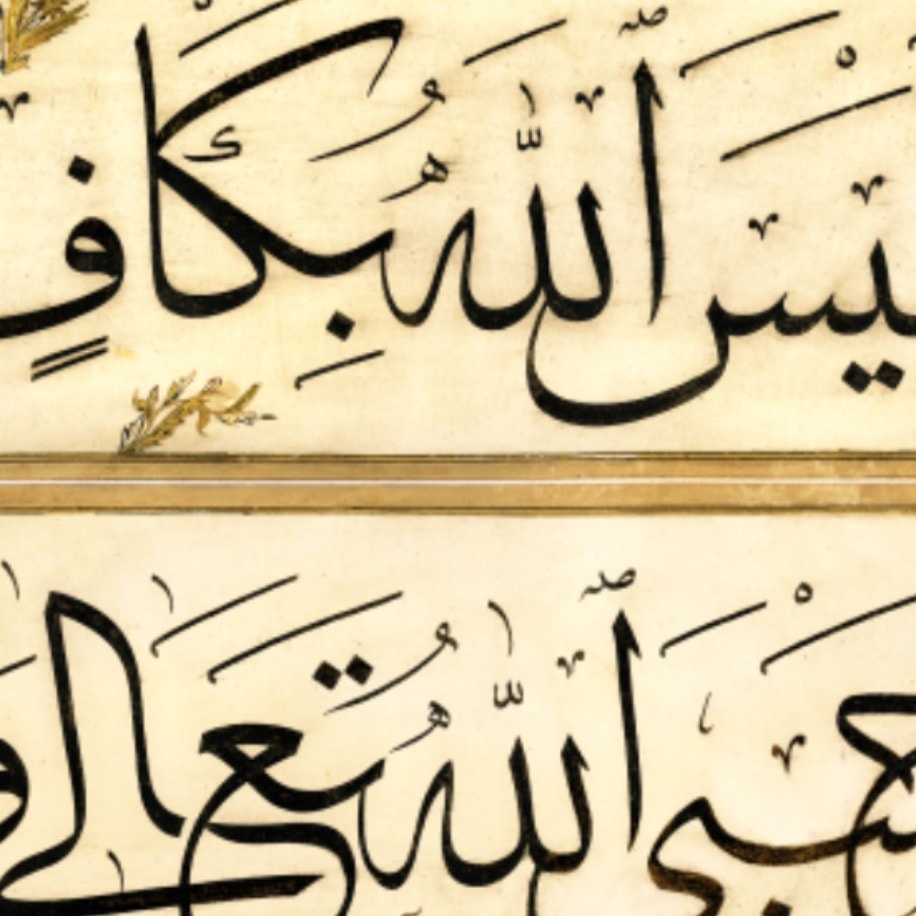 لَيْسَ ٱللّٰهُ بِكَافٍ
حَسْبِيَ ٱللّٰهُ تَعَالٰى